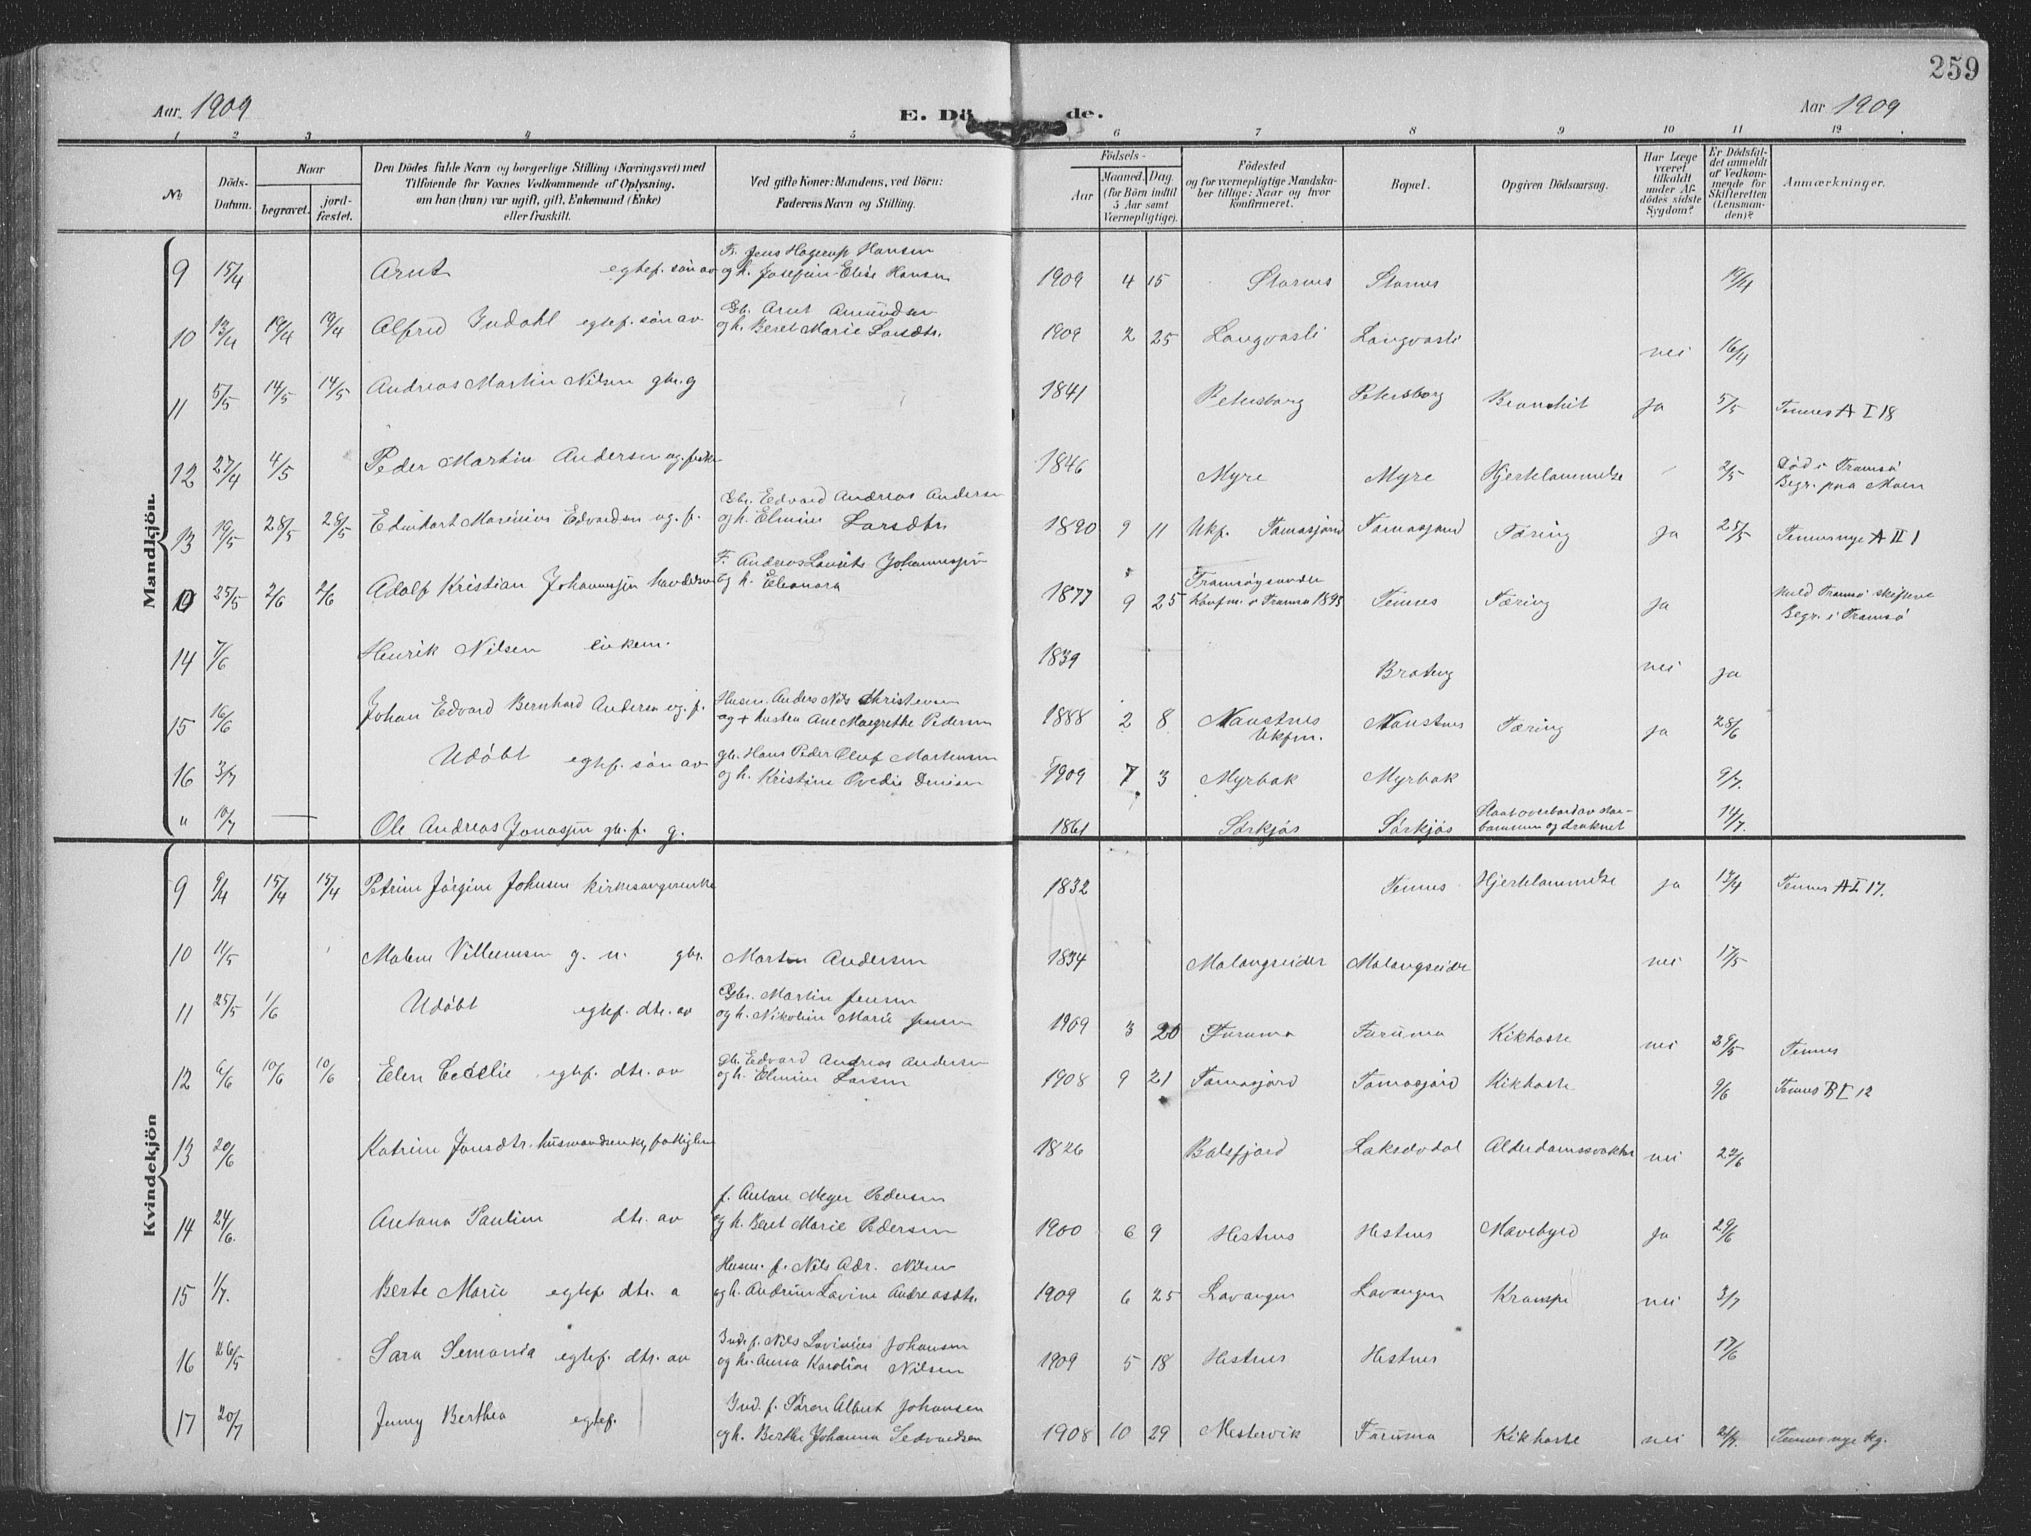 259
Aar. 1909
E. Dö
de.
Aar 1909
1 2 3 4 5 6 7 8 9 10 11 12
No.
Döds-
Datum.
Naar
begravet.
jord-
fæstet.
Den Dödes fulde Navn og borgerlige Stilling (Næringsvei) med
Tilföiende for Voxnes Vedkommende af Oplysning,
om han (hun) var ugift, gift, Enkemand (Enke)
eller fraskilt.
Ved gifte Koner: Mandens, ved Börn:
Faderens Navn og Stilling.
Födsels-
Aar
Maaned, Dag.
(for Börn indtil
5 Aar samt
Værnepligtige).
Födested
og for værnepligtige Mandska-
ber tillige: Naar og hvor
konfirmeret.
Bopæl.
Opgiven Dödsaarsag.
Har Læge
været
tilkaldt
under Af-
dödes sidste
Sygdom?
Er Dödsfal-
det anmeldt
af Vedkom-
mende for
Skifteretten
(Lensman-
den)?
Anmærkninger.
Mandkjön.
F. Jens Hagerup Hansen
9 15/4 Arnt egtef. søn av og h. Josefine Elise Hansen 1909 4 15 Stornes Stornes 19/4
Gbr. Arnt Amundsen
10 13/4 19/4 19/4 Alfred Indahl egtef. søn av og h. Beret Marie Larsdtr. 1909 2 25 Langvasli Langvasli nei 16/4
11 5/5 14/5 14/5 Andreas Martin Nilsen gbr. g 1841 Petersborg Petersborg Bronchit Ja 5/5 Tennes A I 18
12 27/4 4/5 Peder Martin Andersen ug. fisker 1846 Myre Myre Hjertelammelse 2/5 Død i Tromsø
Begr. paa Moen
Gbr. Edvard Andreas Andersen
13 19/5 28/5 28/5 Edvikart Marinius Edvardsen ug. f. og h. Elmine Larsdtr 1890 9 11 Ukf. Tomasjord Tomasjord Tæring Ja 25/5 Tennes nye A II 1
F. Andreas Lauritz Johannessen
25/5 2/6 2/6 Adolf Kristian Johannesen og h. Eleonora 1877 9 25 Tromsøysundet
Konfm. i Tromsø 1893 Tennes Tæring Ja Meld Tromsø skifteret
Begr. i Tromsø
14 7/6 Henrik Nilsen enkem. 1839 Brateng nei ja
Husm. Anders Nils Christensen
15 16/6 Johan Edvard Bernhard Andersen ug. f. og + hustru Ane Margrethe Pedersen 1888 2 8 Naustnes
Ukfm. Naustnes Tæring ja 28/6
gbr. Hans Peder Oluf Mortensen
16 3/7 Udøbt egtef. søn av og h. Kristine Ovedie Denisen 1909 7 3 Myrbak Myrbak 9/7.
" 10/7 — Ole Andreas Jonassen gbr. f. g. 1861 Sørkjos Sørkjos Slaat overbord av stor-
bommen og druknet 14/7.
Kvindekjön
9 9/4 15/4 15/4 Petrine Jørgine Johnsen kirkesangerenke 1832 Tennes Hjertelammelse ja 13/4 Tennes A I 17.
10 11/5 Malene Villumsen g. m. gbr. Morten Andersen 1834 Malangseidet Malangseidet nei 17/5
Gbr. Martin Jensen
11 25/5 1/6 Udøbt egtef. dtr. av og h. Nikoline Marie Jensen 1909 3 20 Furumo Furumo Kikhoste nei 29/5 Tennes
gbr. Edvard Andreas Andersen
12 6/6 10/6 10/6 Elen Cecelie egtef. dtr. av og h. Elmine Larsen 1908 9 21 Tomasjord Tomasjord Kikhoste 9/6 Tennes B I 12
13 20/6 Katrine Jonsdtr. husmandsenke, fattiglem 1826 Balsfjord Laksdvdal Alderdomssvakhet nei 22/6
f. Anton Meyer Pedersen
14 24/6. Antona Pauline dtr. av og h. Beret Marie Pedersen 1900 6 9 Hestnes Hestnes Mavebyld Ja 29/6
Husm. f. Nils Adr. Nilsen
15 1/7. Berte Marie egtef. dtr. a og h. Andrine Lovine Andreasdtr. 1909 6 25 Lavangen Lavangen Krampe nei 3/7
Ind. f. Nils Lovinius Johansen
16 26/5 Sara Semonia egtef. dtr. av og h. Anna Karoline Nilsen 1909 5 18 Hestnes Hestnes 17/6
Ind. f. Søren Albert Johansen
17 20/7 Jenny Berthea egtef. og h. Berthe Johanna Sedvardsen 1908 10 29 Mestervik Furumo Kikhoste nei 21/7. Tennes nye kg.